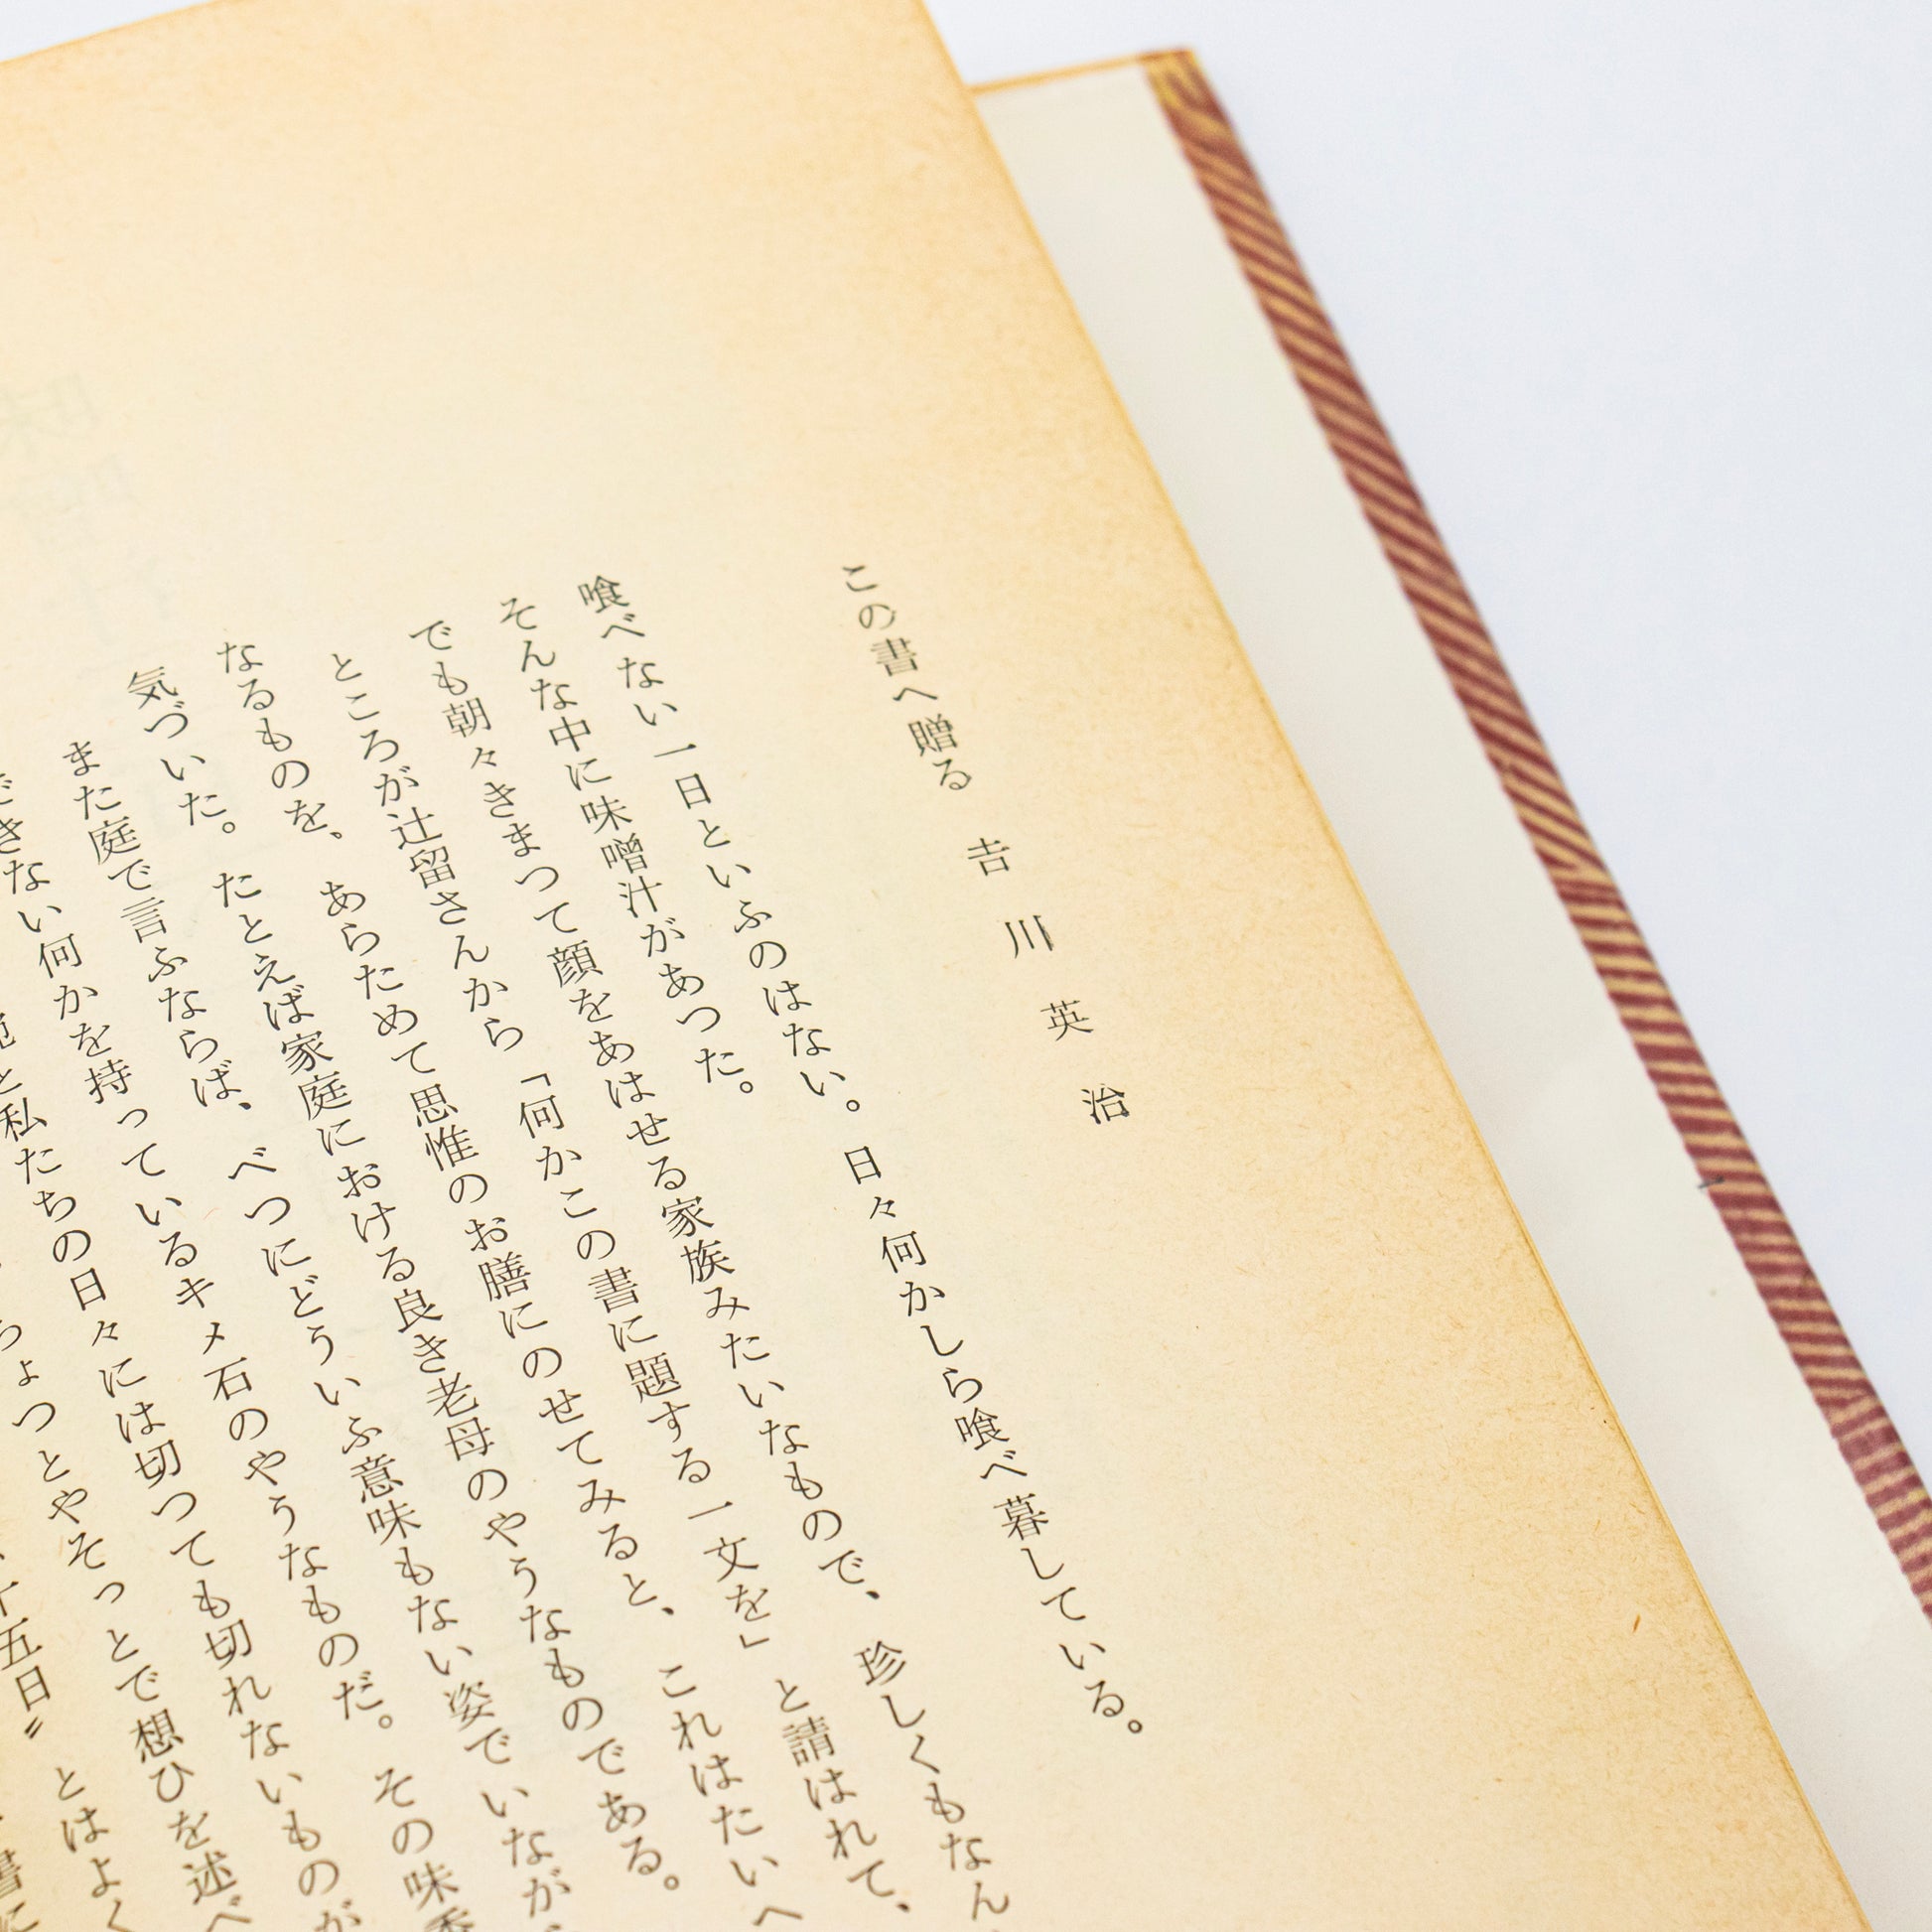 この書へ贈る
吉川英治
喰べない一日といふのはない。日々何かしら喰べ暮している。
そんな中に味噌汁があつた。
でも朝々きまつて顔をあはせる家族みたいなもので、珍しくもなん
ところが辻留さんから「何かこの書に題する一文を」と請はれて、
なるものを、あらためて思惟のお膳にのせてみると、これはたいへ
気づいた。たとえば家庭における良き老母のやうなものである。
また庭で言ふならば、べつにどういふ意味もない姿でいなが
できない何かを持っているキメ石のやうなものだ。その味
と私たちの日々には切つても切れないものが
ちょつとやそっとで想ひを述べ
十五日〟とはよく
書に